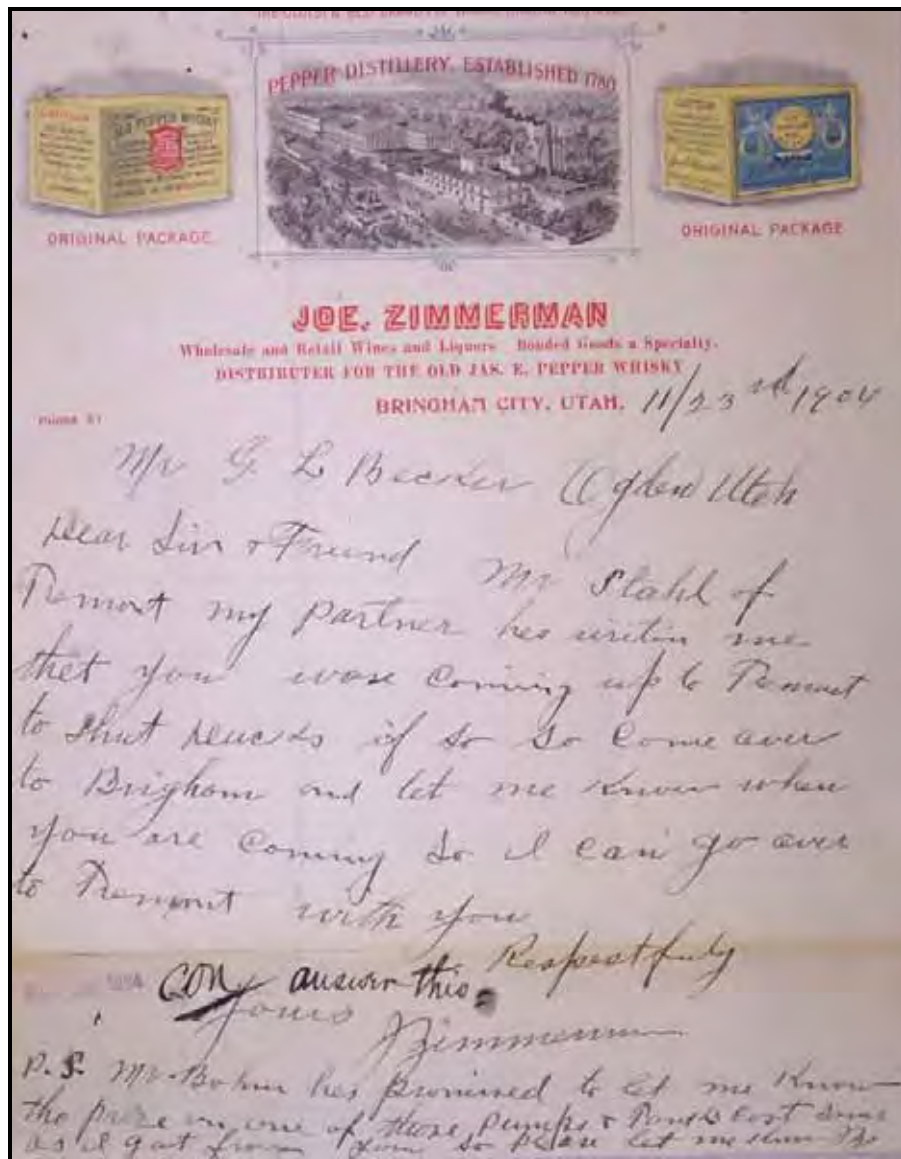 PEPPER DISTILLERY, ESTABLISHED 1780
OLD PEPPER WHISKY
ORIGINAL PACKAGE
ORIGINAL PACKAGE
JOE. ZIMMERMAN
Wholesale and Retail Wines and Liquors Bonded Goods a Specialty.
DISTRIBUTER FOR THE OLD JAS. E. PEPPER WHISKY
BRINGHAM CITY, UTAH, 11/23rd 1904
PHONE 51
Mr G L Becker Ogden Utah
Dear Sir & Friend Mr Stahl of
Tremont my Partner hes writin me
thet you ware Coming up to Tremont
to Shut Ducks if so so Come over
to Brigham and let me Know when
you are Coming So I can go over
to Tremont with you
Respectfuly
answer this
Yours
JZimmerman
P.S. Mr Bohm has promised to let me Know
the prize on one of those Pumps & cost same
as I got from you so please let me know the